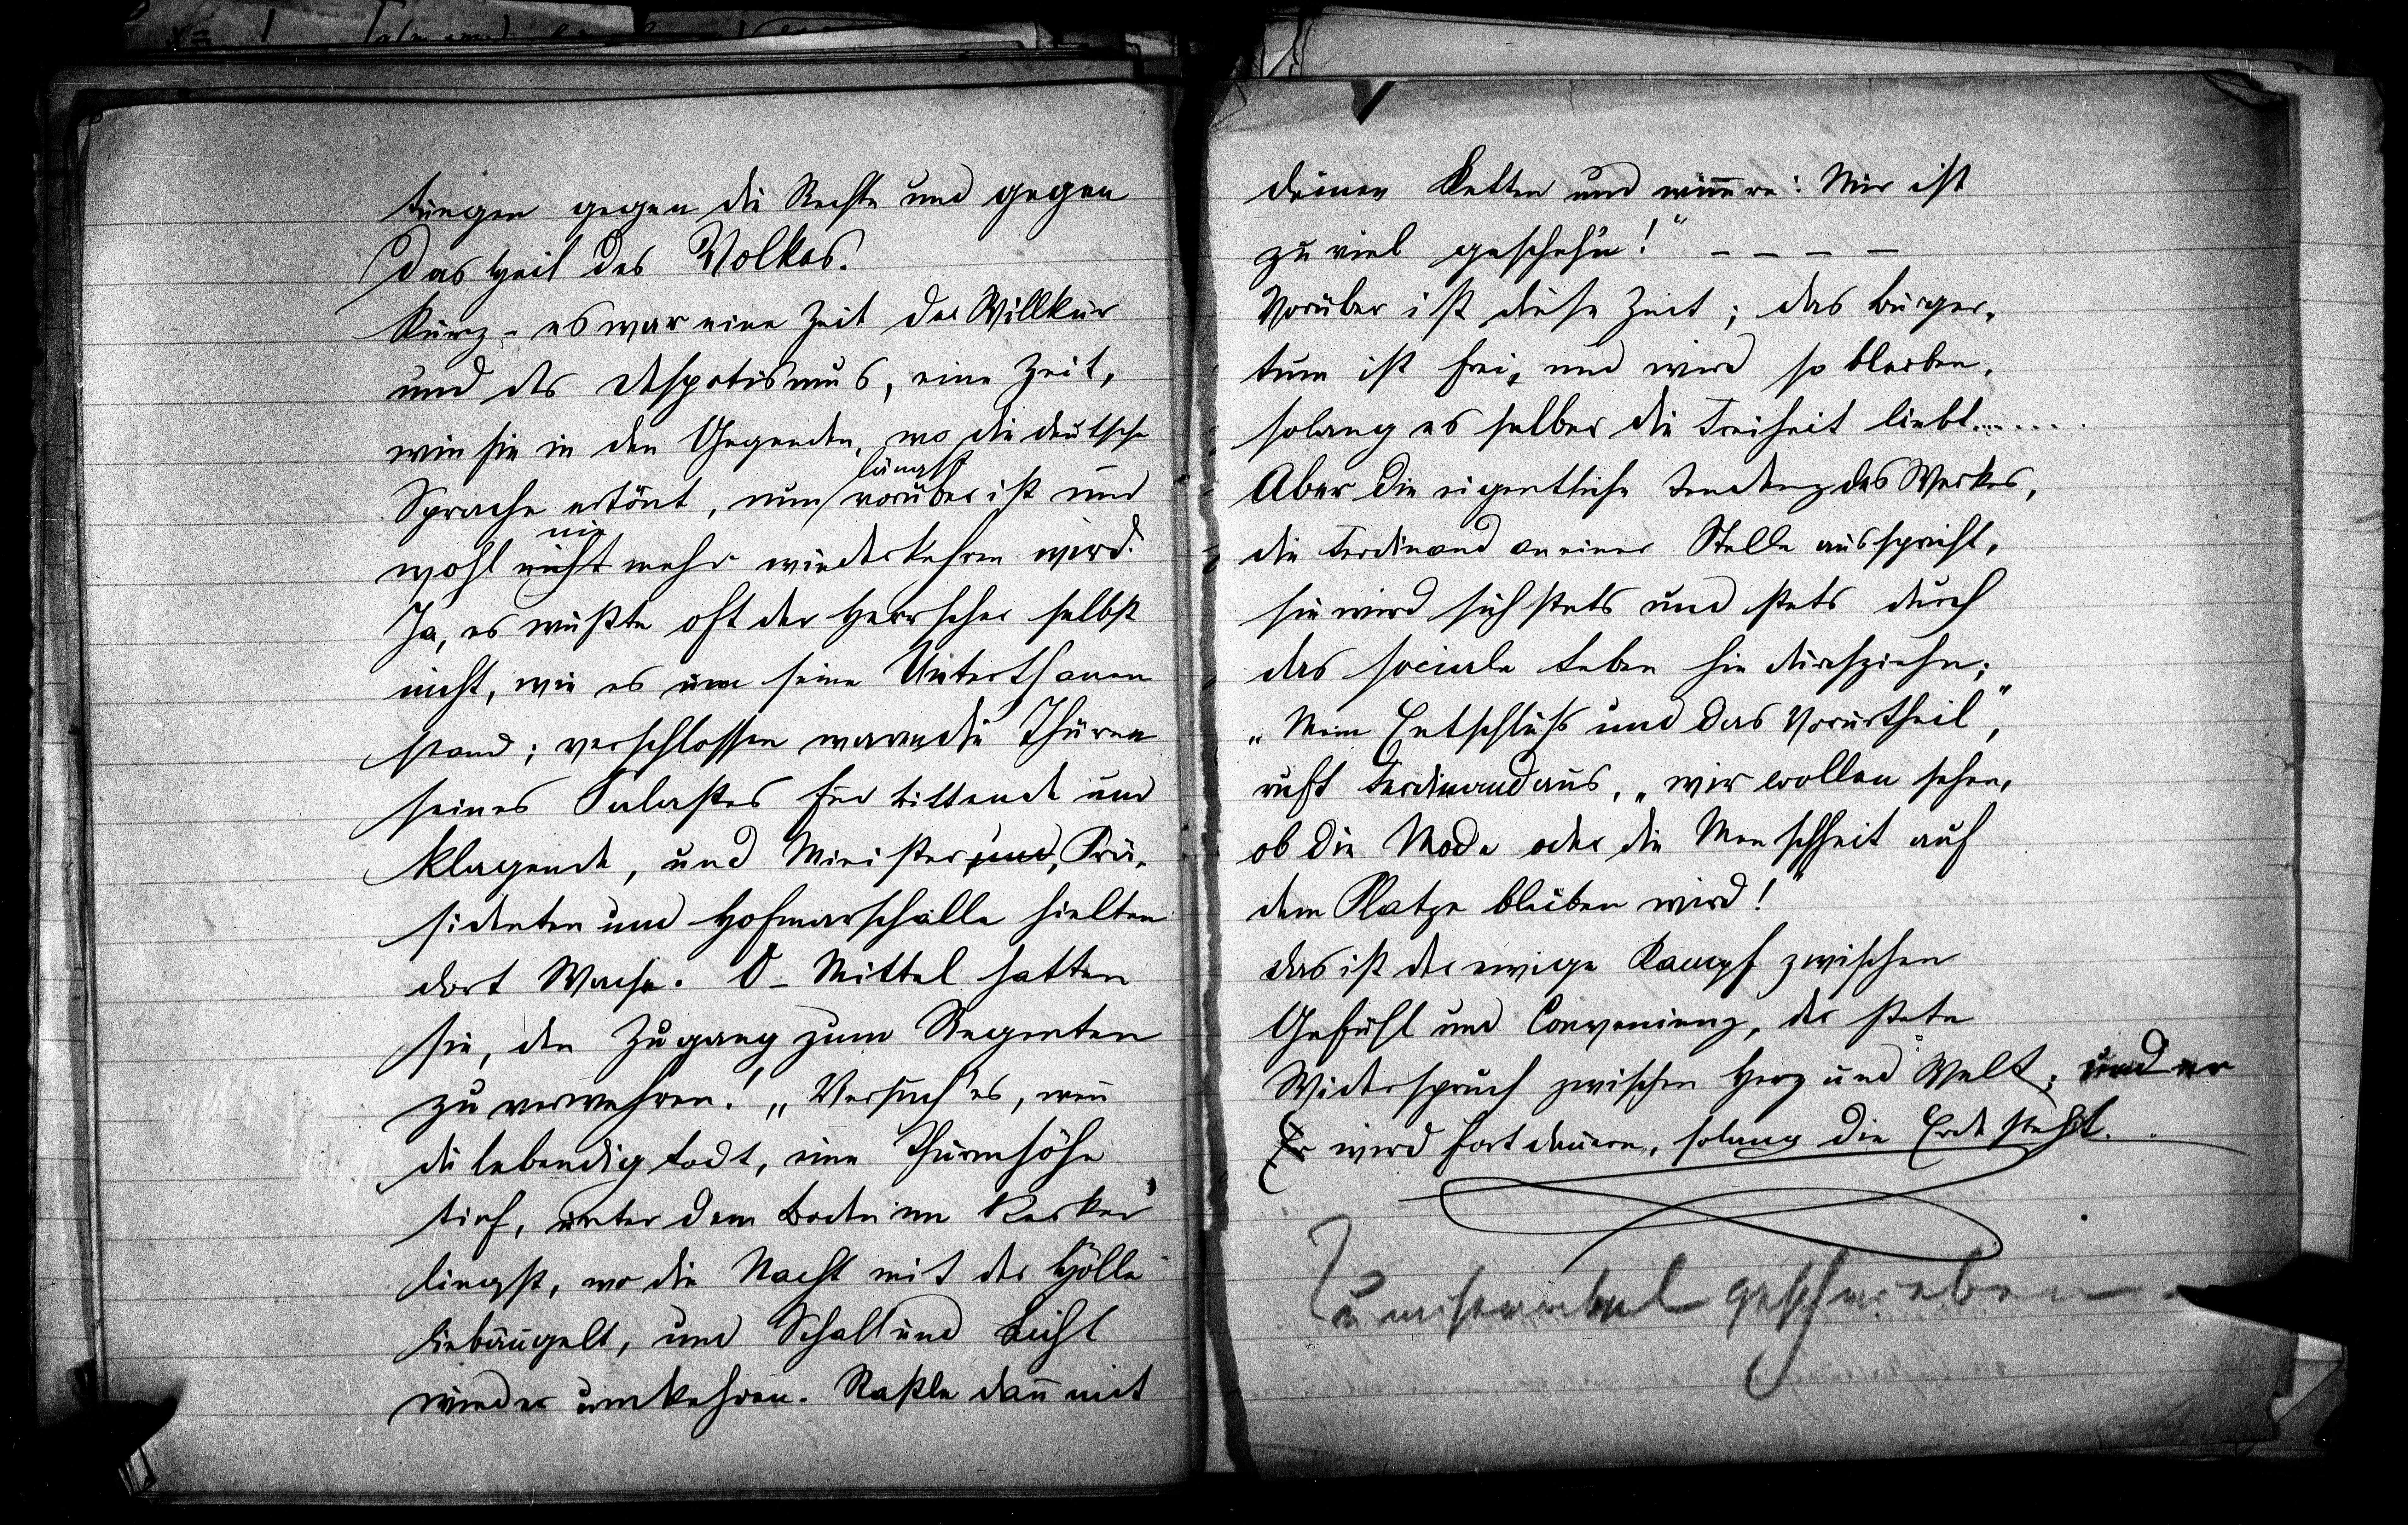 tungen gegen die Rechte und gegen
das Heil des Volkes.
Kurz – es war eine Zeit der Willkür
und des Despotismus, eine Zeit,
wie sie in den Gegenden, wo die deutsche
Sprache ertönt, nun längst vorüber ist und
wohl nie mehr wiederkehren wird.
Ja, es wußte oft der Herrscher selbst
nicht, wie es um seine Unterthanen
stand; verschlossen waren die Thüren
seines Palastes für bittende und
klagende, und Minister, Prä-
sidenten und Hofmarschälle hielten
dort Wache. O – Mittel hatten
sie, den Zugang zum Regenten
zu verwehren! „Versuch' es, wenn
du lebendig todt, eine Thurmhöhe
tief, unter dem Boden im Kerker
liegst, wo die Nacht mit der Hölle
liebäugelt, und Schall und Licht
wieder umkehren. Raßle dann mit
deinen Ketten und wimmre: Mir ist
zu viel geschehn!" – – – –
Vorüber ist diese Zeit; das Bürger-
tum ist frei, und wird so bleiben,
solang es selber die Freiheit liebt.......
Aber die eigentliche Tendenz des Werkes,
die Ferdinand an einer Stelle ausspricht,
sie wird sich stets und stets durch
das sociale Leben hin durchziehn;
„Mein Entschluß und das Vorurtheil",
ruft Ferdinand aus, „wir wollen sehen,
ob die Mode oder die Menschheit auf
dem Platze bleiben wird!"
das ist der ewige Kampf zwischen
Gefühl und Convenienz, der stete
Widerspruch zwischen Herz und Welt; und er
wird fortdauern, solang die Erde steht.
Zu miserabel geschrieben